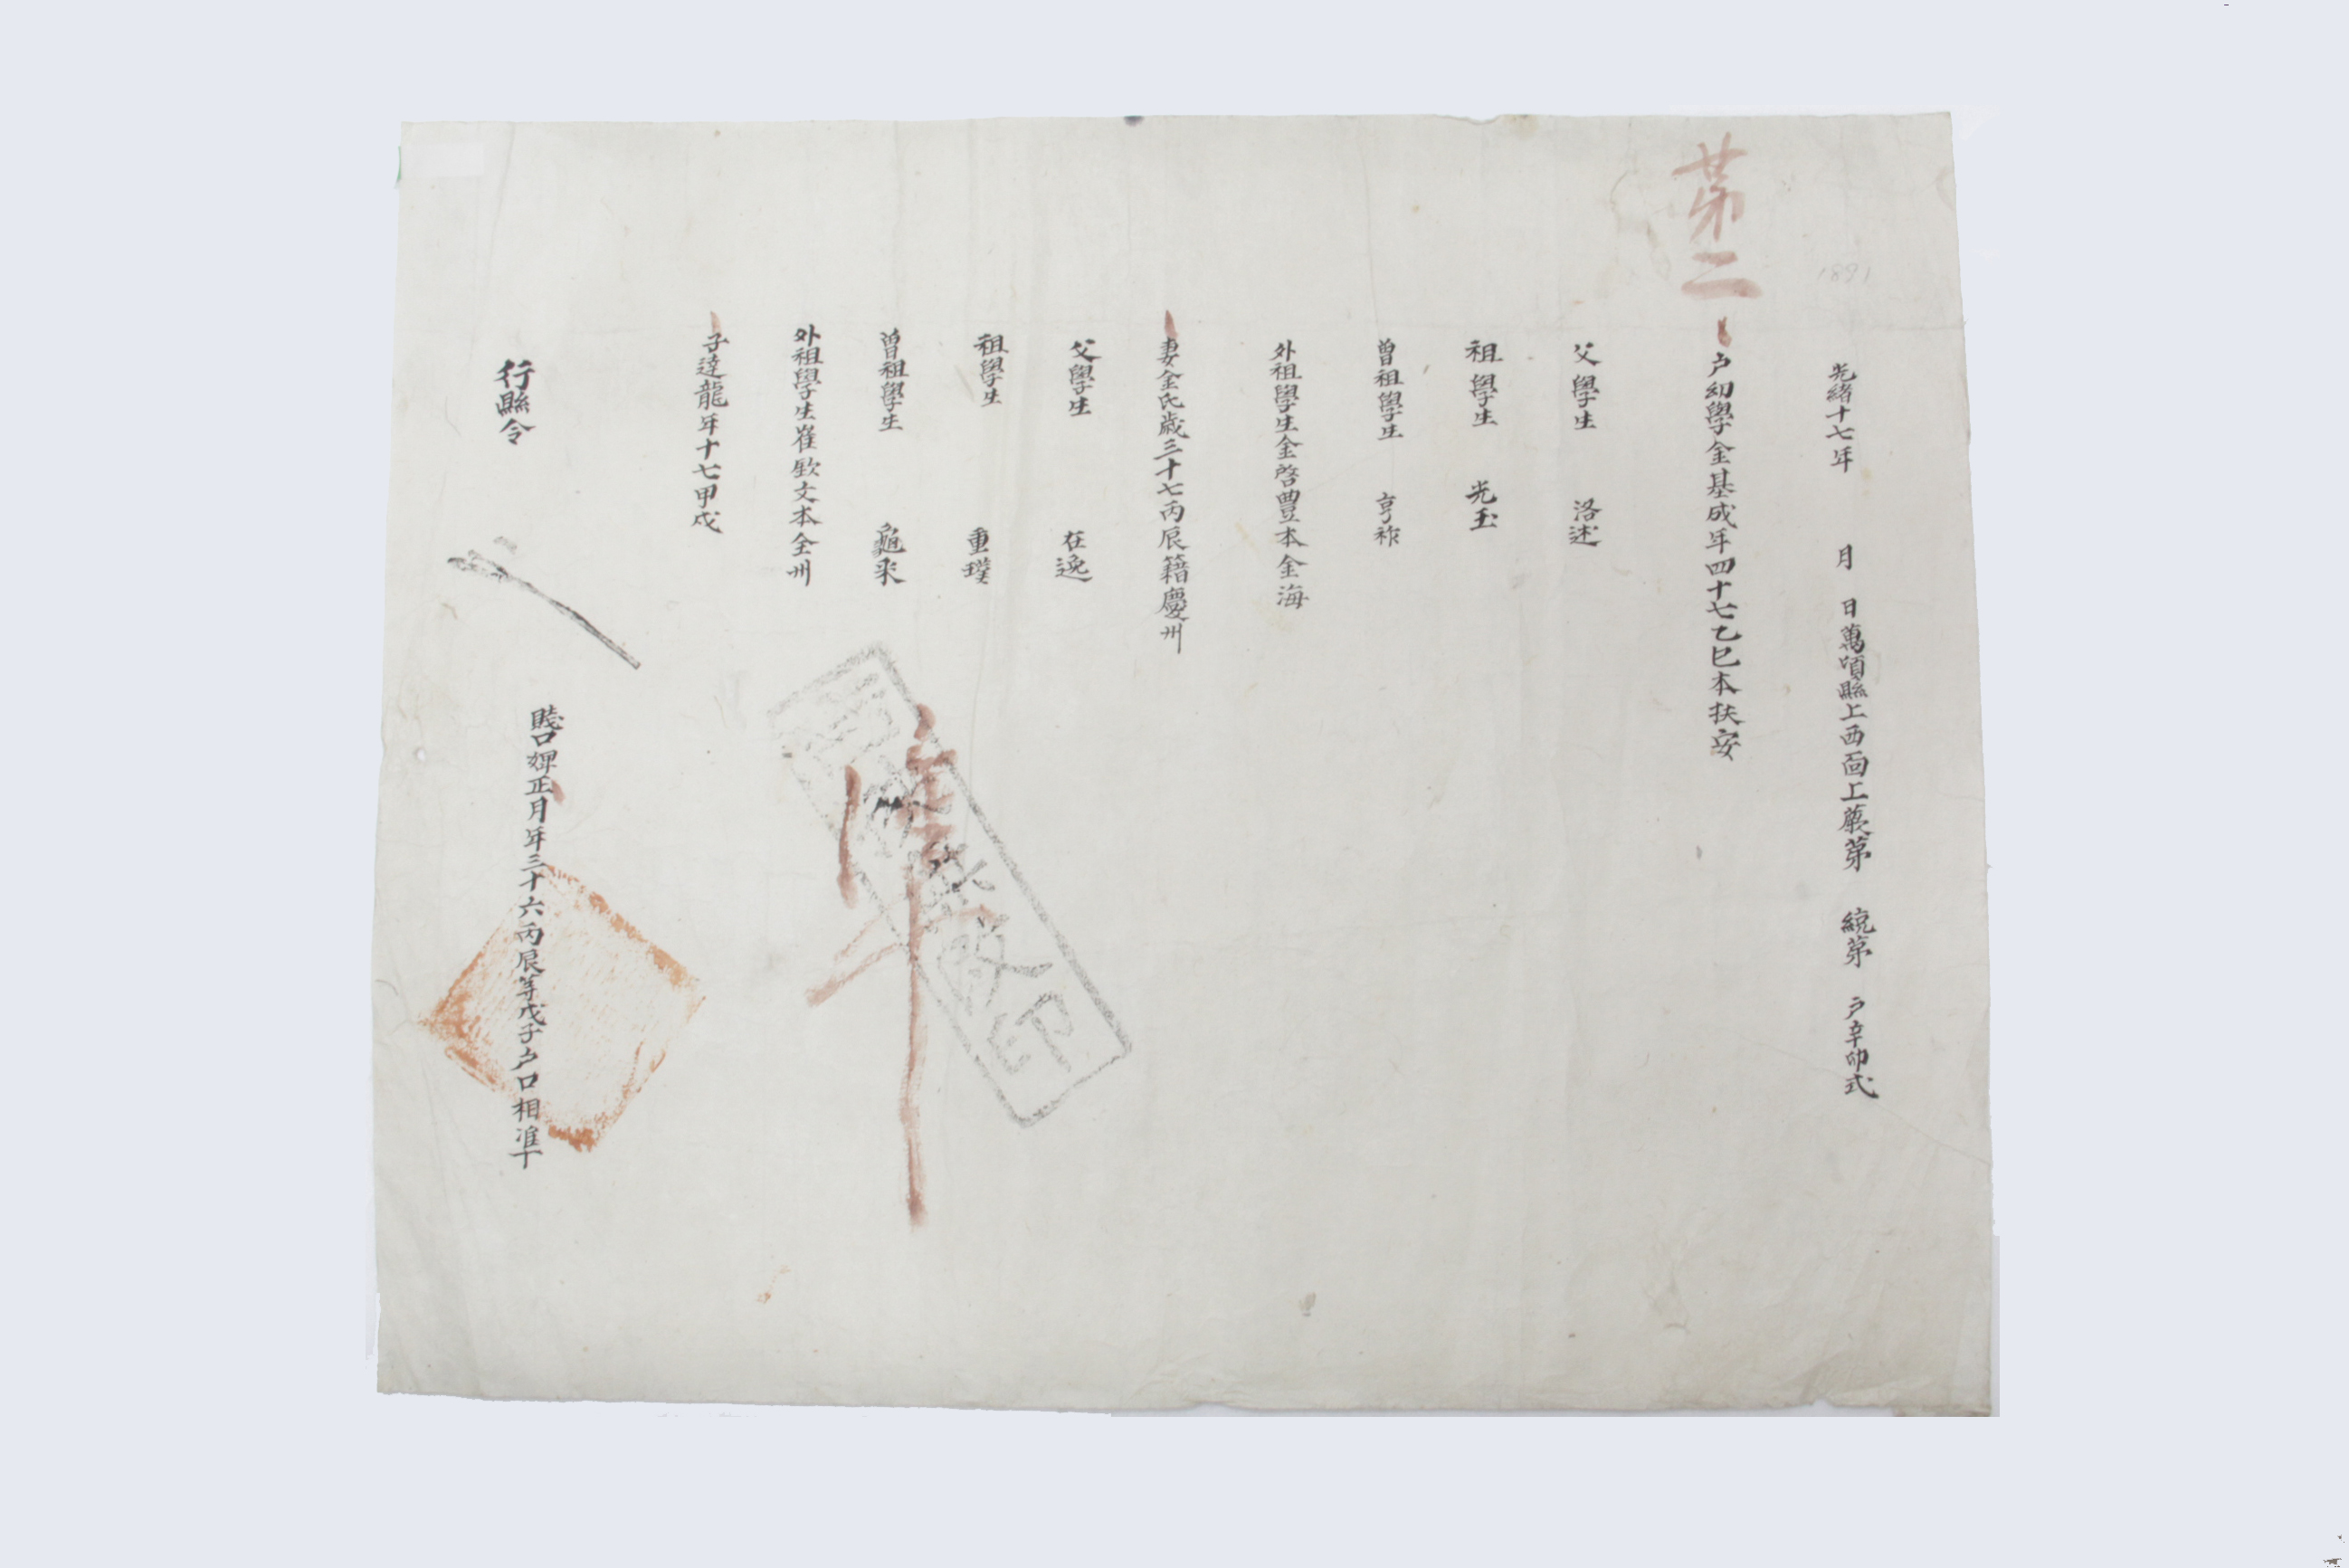 1891
光緖十七年 月 日萬頃縣上西面上蕨第 統第 戶辛卯式
第二
戶幼學金基成年四十七乙巳本扶安
父學生 洛述
祖學生 光玉
曾祖學生 亨祚
外祖學生金啓豊本金海
妻金氏歲三十七丙辰籍慶州
父學生 在逸
祖學生 重璞
曾祖學生 龜采
外祖學生崔欽文本全州
子達龍年十七甲戌
賤口婢正月年三十六丙辰等戊子戶口相準卞
行縣令
印